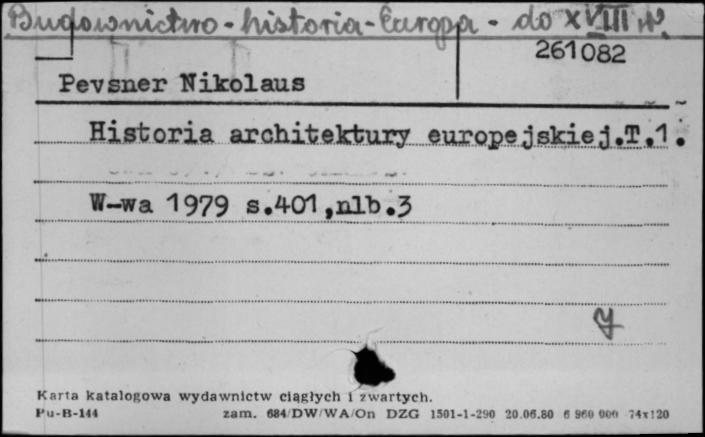 Budownictwo - historia - Europa - do XVIII w.
261082
Pevsner Nikolaus
Historia architektury europejskiej.T.1.
W-wa 1979 s.401,nlb.3
Karta katalogowa wydawnictw ciągłych i zwartych.
Pu-B-144 zam. 684/DW/WA/On DZG 1501-1-290 20.06.80 6 960 000 74x120